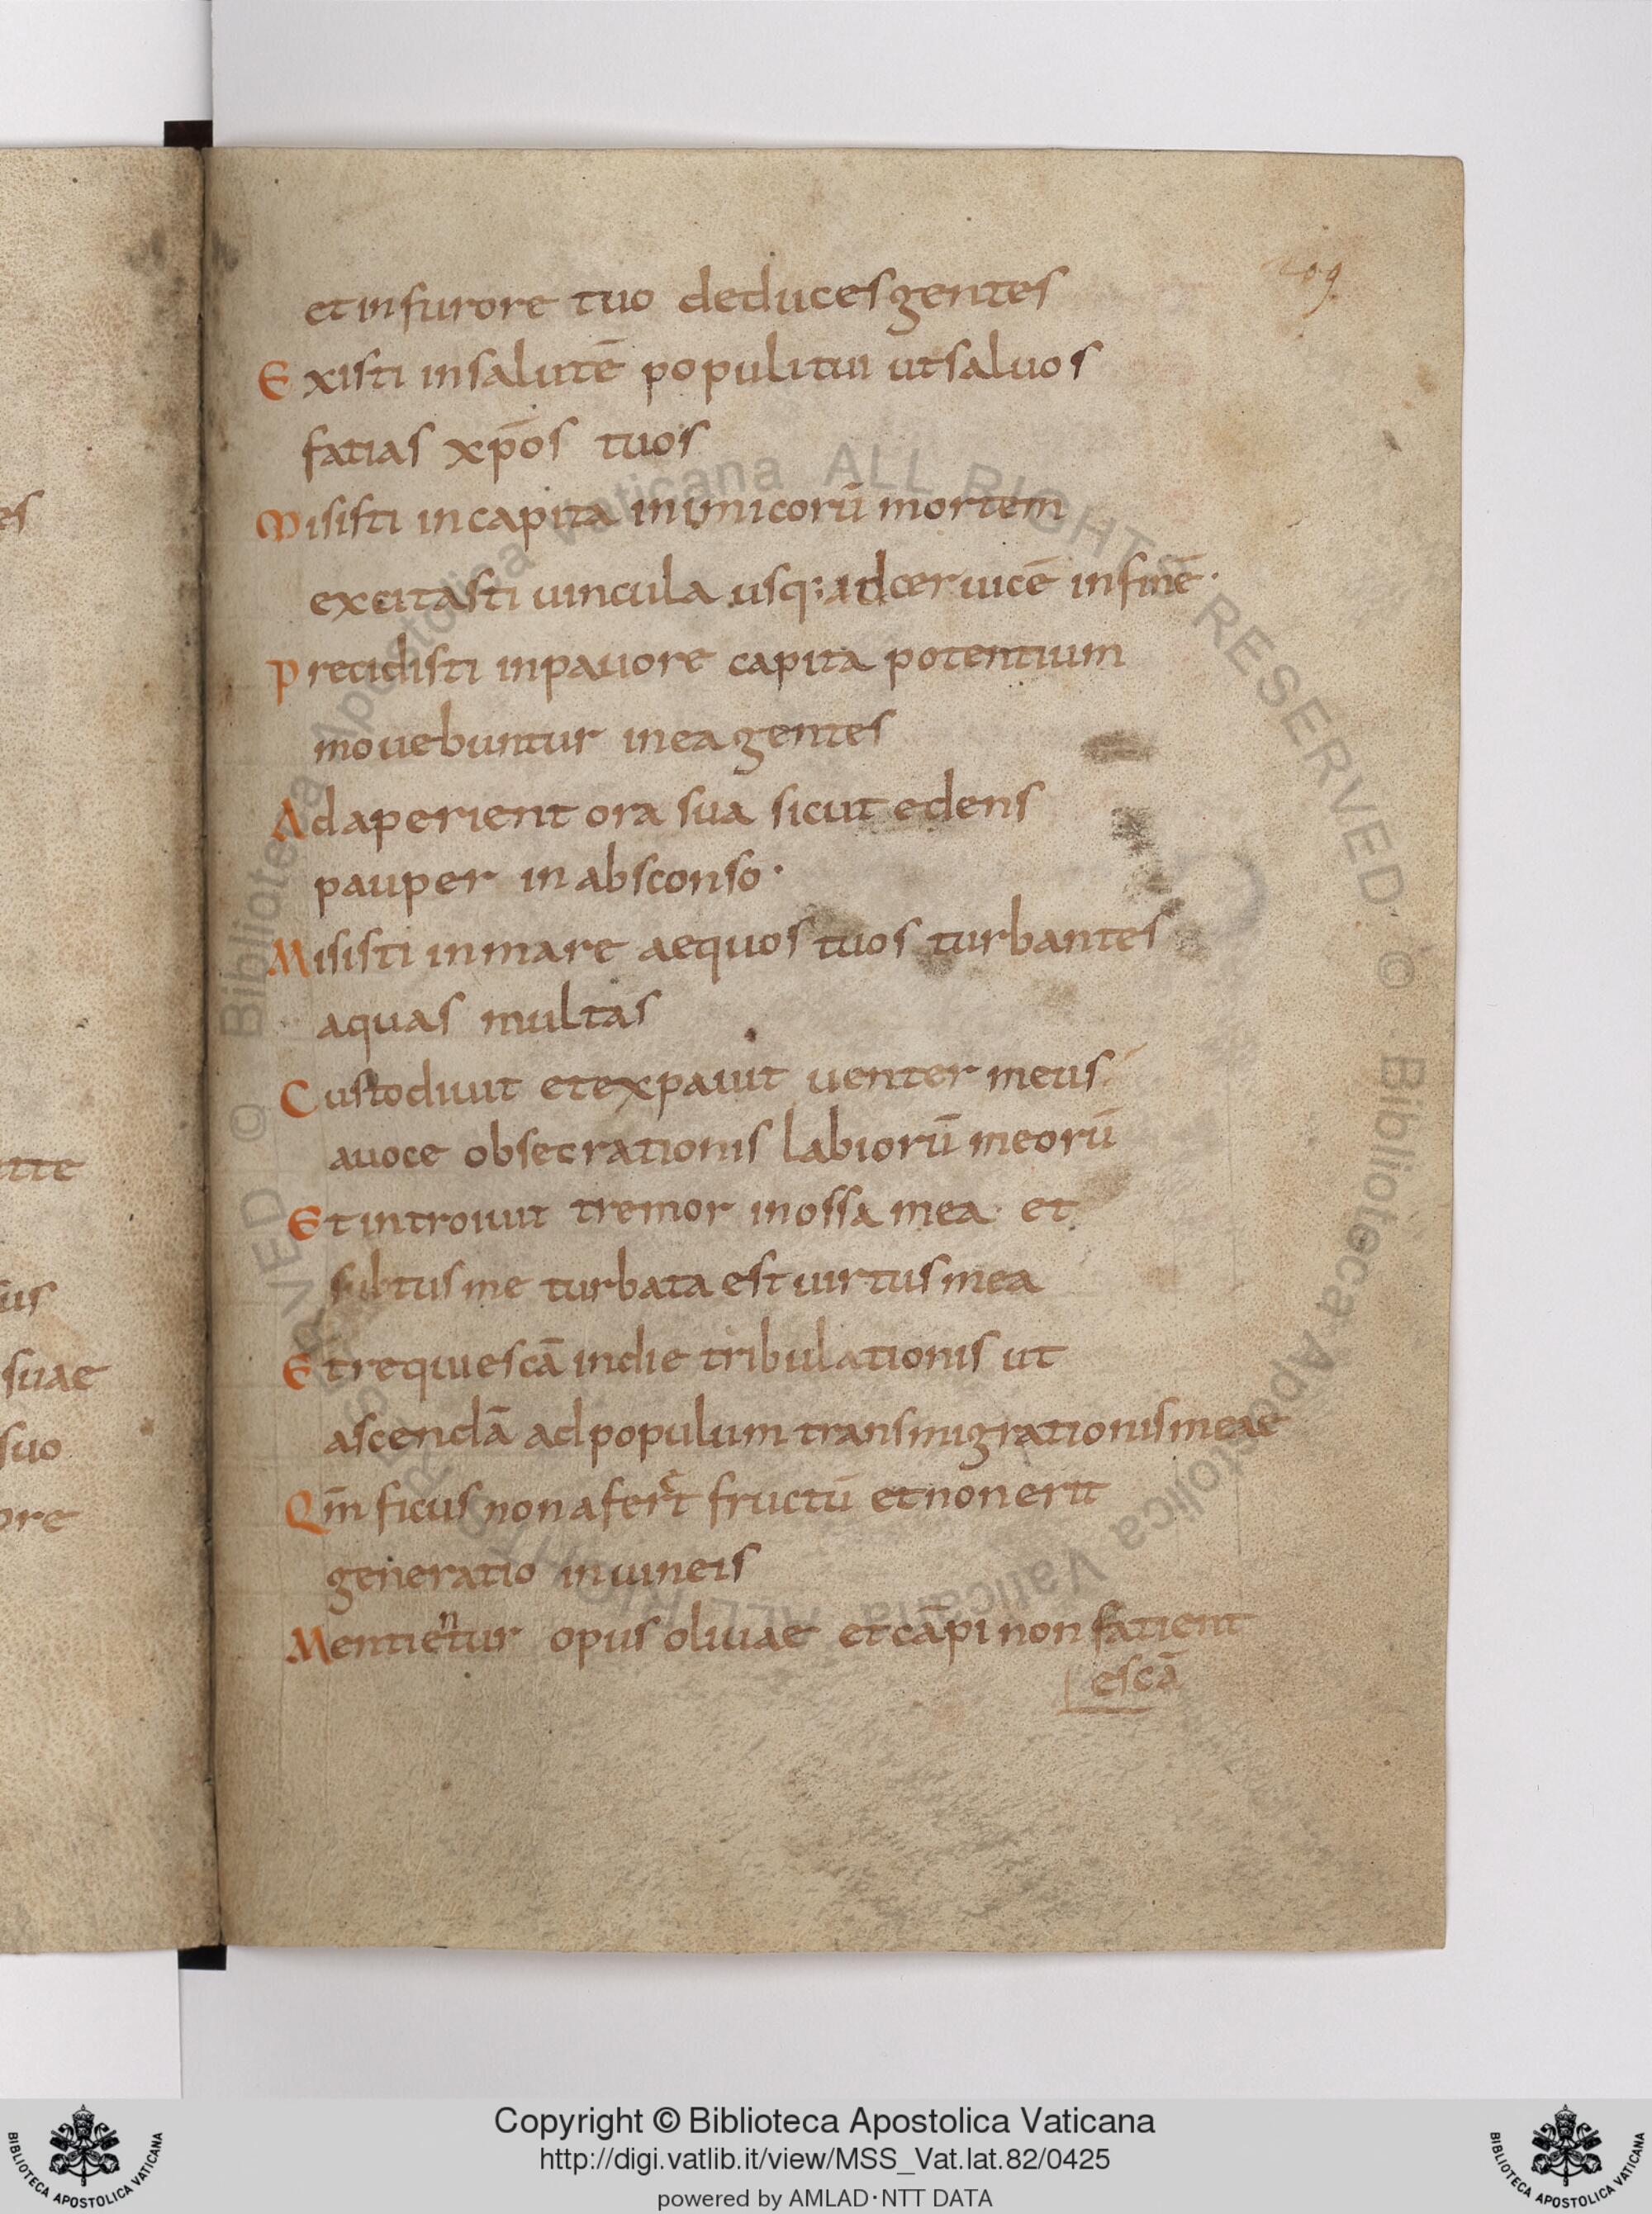 209
et in furore tuo deduces gentes
Existi in salutē populi tui ut saluos
fatias xp̄os tuos
Misisti in capita inimicorū mortem
excitasti uincula usq; ad ceruicē in finē·
Precidisti in pauore capita potentium
mouebuntur in ea gentes
Adaperient ora sua sicut edens
pauper in absconso·
Misisti in mare aequos tuos turbantes
aquas multas
Custodiuit et expauit uenter meus
a uoce obsecrationis labiorū meorū
Et introiuit tremor in ossa mea· et
subtus me turbata est uirtus mea
Et requiescā in die tribulationis ut
ascendā ad populum transmigrationis meae
Qm̄ ficus non aferet fructū et non erit
generatio in uineis
Mentientur opus oliuae et cāpi non fatient
escā
es
itte
ūs
suae
suo
ore
© Biblioteca Apostolica Vaticana ALL RIGHTS RESERVED © Biblioteca Apostolica Vaticana ALL RIGHTS RESERVED
Copyright © Biblioteca Apostolica Vaticana
http://digi.vatlib.it/view/MSS_Vat.lat.82/0425
powered by AMLAD·NTT DATA
BIBLIOTECA APOSTOLICA VATICANA
BIBLIOTECA APOSTOLICA VATICANA